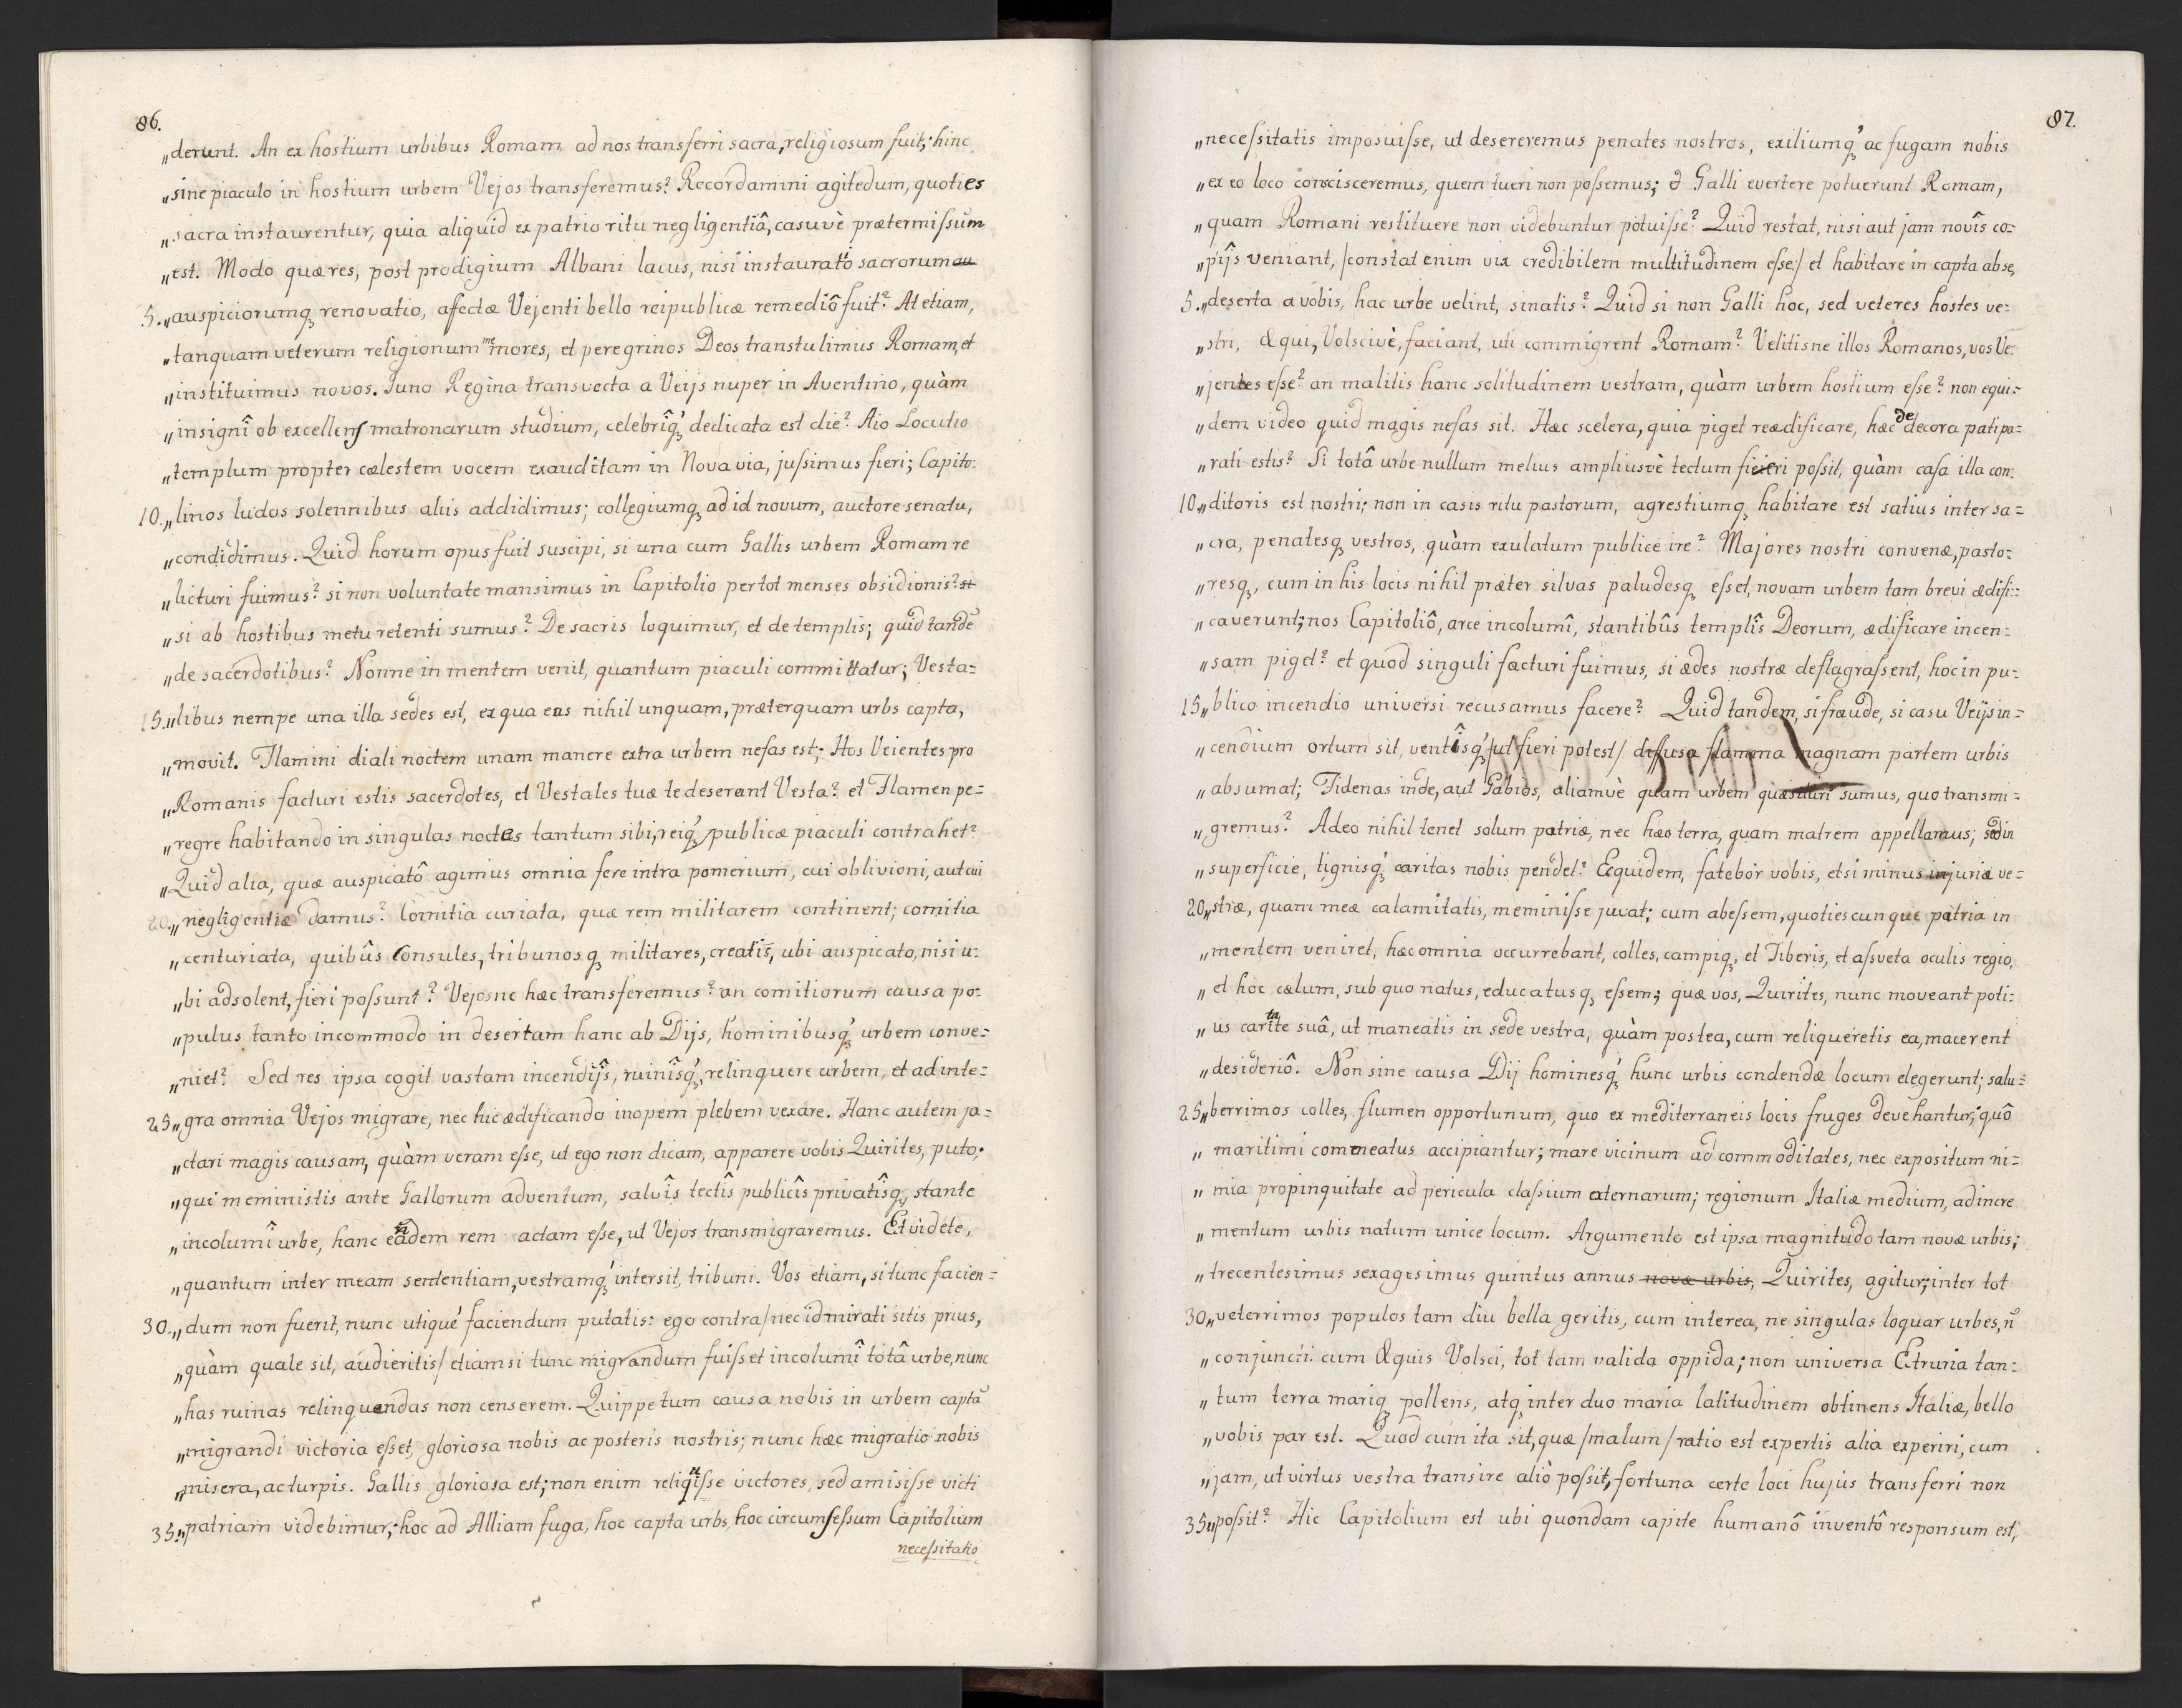 86.
„derunt. An ex hostium urbibus Romam ad nos transferri sacra, religiosum fuit; hinc
„sine piaculo in hostium urbem Vejos transferemus? Recordamini agitedum, quoties
„sacra instaurentur, quia aliquid ex patrio ritu negligentiâ, casuvè prætermiſsum
„est. Modo quæ res, post prodigium Albani lacus, nisi instauratio sacrorum au
5. „auspiciorumq₃ renovatio, affectæ Vejenti bello reipublicæ remediô fuit? At etiam,
„tanquam veterum religionum memores, et peregrinos Deos transtulimus Romam, et
„instituimus novos. Juno Regina transvecta a Veijs nuper in Aventino, quàm
„insignî ob excellens matronarum studium, celebrîq₃́ dedicata est die? Aio Locutio
„templum propter cælestem vocem exauditam in Nova via, juſsimus fieri; Capito-
10. „linos ludos solennibus aliis addidimus; collegiumq₃ ad id novum, auctore senatu,
„condidimus. Quid horum opus fuit suscipi, si una cum Gallis urbem Romam re
„licturi fuimus? si non voluntate mansimus in Capitolio per tot menses obsidionis? si
„si ab hostibus metu retenti sumus? De sacris loquimur, et de templis; quid tandē
„de sacerdotibus? Nonne in mentem venit, quantum piaculi committatur; Vesta=
15. „libus nempe una illa sedes est, ex qua eas nihil unquam, præterquam urbs capta,
„movit. Flamini diali noctem unam manere extra urbem nefas est; Hos Veientes pro
„Romanis facturi estis sacerdotes, et Vestales tuæ te deserant Vesta? et Flamen pe=
„regre habitando in singulas noctes tantum sibi, reiq₃́ publicæ piaculi contrahet?
„Quid alia, quæ auspicatô agimus omnia fere intra pomerium, cui oblivioni, aut cui
20. „negligentiæ damus? Comitia curiata, quæ rem militarem continent; comitia
„centuriata, quibûs Consules, tribunosq₃ militares, creatis, ubi auspicato, nisi u-
„bi adsolent, fieri poſsunt? Vejosne hæc transferemus? an comitiorum causa po-
„pulus tanto incommodo in desertam hanc ab Dijs, hominibusq₃́ urbem conve=
„niet? Sed res ipsa cogit vastam incendijs, ruinîsq₃́, relinquere urbem, et ad inte=
25 „gra omnia Vejos migrare, nec hic ædificando inopem plebem vexare. Hanc autem ja=
„ctari magis causam, quàm veram eſse, ut ego non dicam, apparere vobis Quirites, puto;
„qui meministis ante Gallorum adventum, salvîs tectîs publicîs privatîsq₃, stante
„incolumî urbe, hanc eandem rem actam eſse, ut Vejos transmigraremus. Et videte,
„quantum inter meam sententiam, vestramq₃́ intersit, tribuni. Vos etiam, si tunc facien=
30. „dum non fuerit, nunc utiqué faciendum putatis: ego contra/ nec id mirati sitis prius,
„quàm quale sit, audieritis/ etiamsi tunc migrandum fuiſset incolumî totâ urbe, nunc
„has ruinas relinquendas non censerem. Quippe tum causa nobis in urbem captā
„migrandi victoria eſset, gloriosa nobis ac posteris nostris; nunc hæc migratio nobis
„misera, ac turpis. Gallis gloriosa est; non enim reliquiſse victores, sed amisiſse victi
35. „patriam videbimur; hoc ad Alliam fuga, hoc capta urbs, hoc circumſeſsum Capitolium
neceſsitatio
87.
„neceſsitatis imposuiſse, ut desereremus penates nostros, exiliumq₃́ ac fugam nobis
„ex eo loco conscisceremus, quem tueri non poſsemus; & Galli evertere potuerunt Romam,
„quam Romani restituere non videbuntur potuiſse? Quid restat, nisi aut jam novîs co-
„pîjs veniant, /constat enim vix credibilem multitudinem eſse/ et habitare in capta abse,
5. „deserta a vobis, hac urbe velint, sinatis? Quid si non Galli hoc, sed veteres hostes ve-
„stri, Æqui, Volscivè, faciant, uti commigrent Romam? Velitisne illos Romanos, vos Ve-
„jentes eſse? an malitis hanc solitudinem vestram, quàm urbem hostium eſse? non equi-
„dem video quid magis nefas sit. Hæc scelera, quia piget reædificare, hæc dedecora pati pa-
„rati estis? Si totâ urbe nullum melius ampliusvè tectum fieri poſsit, quàm casa illa con-
10 „ditoris est nostri; non in casis ritu pastorum, agrestiumq₃ habitare est satius inter sa=
„cra, penatesq₃ vestros, quàm exulatum publice ire? Majores nostri convenæ, pasto-
„resq₃, cum in his locis nihil præter silvas paludesq₃ eſset, novam urbem tam brevi ædifi-
„caverunt; nos Capitoliô, arce incolumî, stantibûs templîs Deorum, ædificare incen-
„sam piget? et quod singuli facturi fuimus, si ædes nostræ deflagraſsent, hoc in pu-
15 „blico incendio universi recusamus facere? Quid tandem, si fraude, si casu Veijs in-
„cendium ortum sit, ventîsq₃́ /ut fieri potest/ diffusa flamma magnam partem urbis
„absumat; Fidenas inde, aut Gabios, aliamvè quam urbem quæsituri sumus, quo transmi-
„gremus? Adeo nihil tenet solum patriæ, nec hæc terra, quam matrem appellamus; sed in
„superficie, tignisq₃́ caritas nobis pendet? Equidem, fatebor vobis, etsi minus injuriæ ve-
20 „stræ, quam meæ calamitatis, meminiſse juvat; cum abeſsem, quotiescunque patria in
„mentem veniret, hæc omnia occurrebant, colles, campiq₃, et Tiberis, et aſsveta oculis regio,
„et hoc cælum, sub quo natus, educatusq₃ eſsem; quæ vos, Quirites, nunc moveant poti-
„us caritate suâ, ut maneatis in sede vestra, quàm postea, cum reliqueretis ea, macerent
„desideriô. Non sine causa Dij hominesq₃́ hunc urbis condendæ locum elegerunt; salu-
25 „berrimos colles, flumen opportunum, quo ex mediterraneis locis fruges devehantur, quô
„maritimi commeatus accipiantur; mare vicinum ad commoditates, nec expositum ni-
„mia propinquitate ad pericula claſsium externarum; regionum Italiæ medium, ad incre
„mentum urbis natum unice locum. Argumento est ipsa magnitudo tam novæ urbis;
„trecentesimus sexagesimus quintus annus novæ urbis, Quirites, agitur; inter tot
30 „veterrimos populos tam diu bella geritis, cum interea, ne singulas loquar urbes, n̄
„conjuncti cum Æquis Volsci, tot tam valida oppida; non universa Etruria tan-
„tum terra mariq₃ pollens, atq₃ inter duo maria latitudinem obtinens Italiæ, bello
„vobis par est. Quod cum ita sit, quæ /malum/ ratio est expertis alia experiri, cum
„jam, ut virtus vestra transire aliò poſsit, fortuna certe loci hujus transferri non
35 „poſsit? Hic Capitolium est ubi quondam capite humanô inventô responsum est,